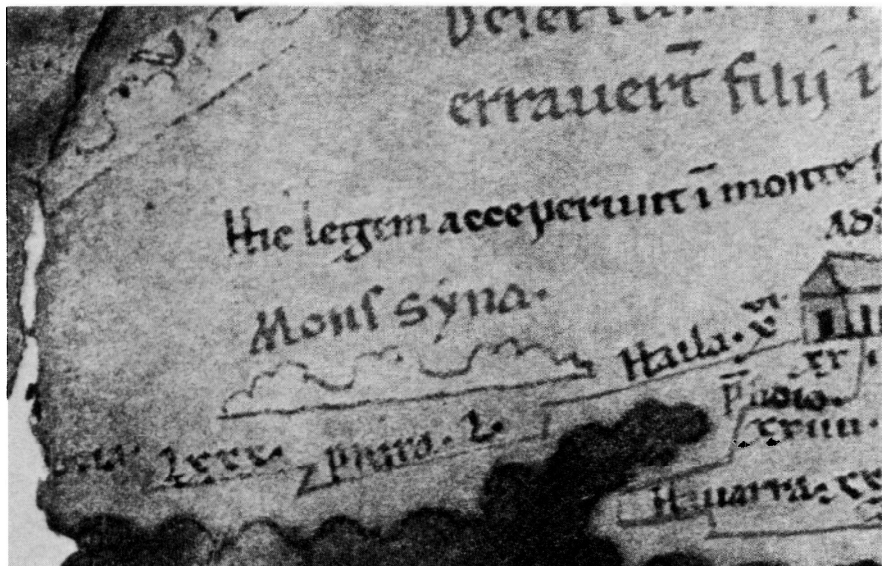 Desertum
erravert̄ filij
Hic legem acceperunt ī monte
Mons syna.
Ad
Haila. xvi.
xx
Phara. L.
Lxxx.
p̄sidio.
xxiiii.
Hauarra. xx